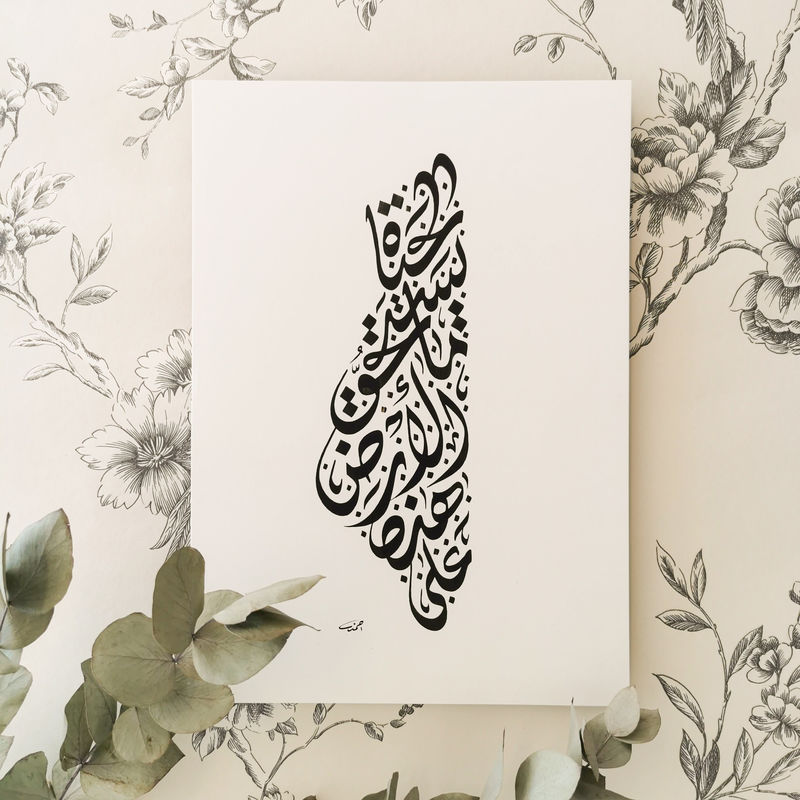 على هذه الأرض ما يستحقُّ الحياة